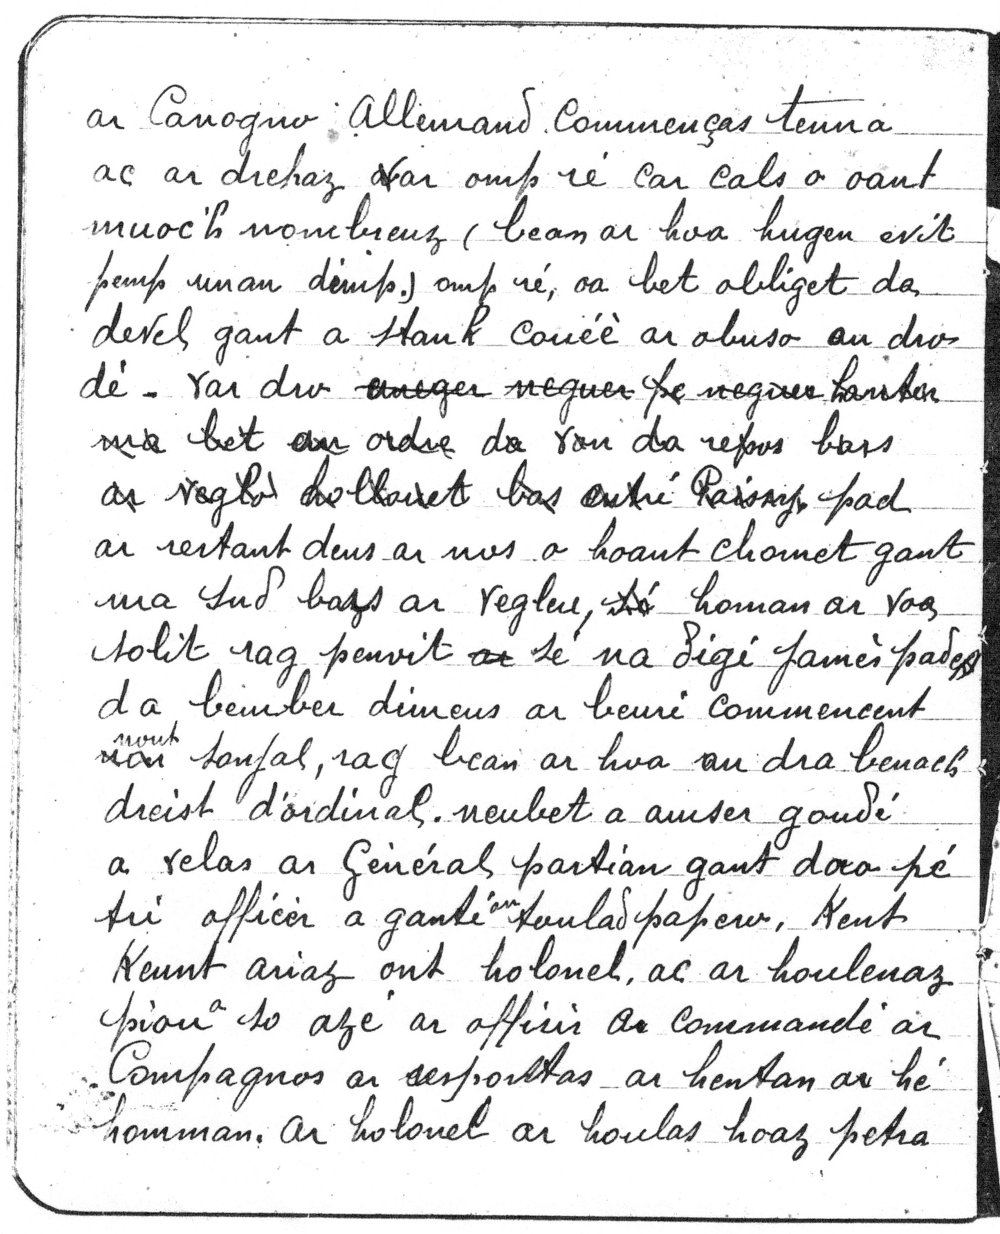 ar Canogno Allemand Commenças tenna
ac ar drehaz var omp ré car cals o oant
muoc'h nombreuz (bean ar hoa hugen evit
pemp unan dimp.) omp ré, oa bet obliget da
devel gant a stank couéè ar obuso an dro
dé - Var dro aneger neguer pe neguer hanter
ma bet an ordre da von da repos bars
ar veglo hollouet bas entré Paissy. pad
ar restant deus ar nos o hoant chomet gant
ma sud bars ar vegleu, sé homan ar voa
solit rag penvit ar sé na digé jamès padet
da bember dimeus ar beuré commencent
nout sonjal, rag bean ar hoa an dra benach
dreist d'ordinal. neubet a amser goudé
a velas ar Général partian gant daou pé
tri officèr a ganté an toulad papero, Kent
Kennt ariaz ont holonel, ac ar houlenaz
piou a so azé ar offisir ar commandé ar
Compagnos ar respontas ar hentan ar hé
homman. Ar holonel ar houlas hoaz petra